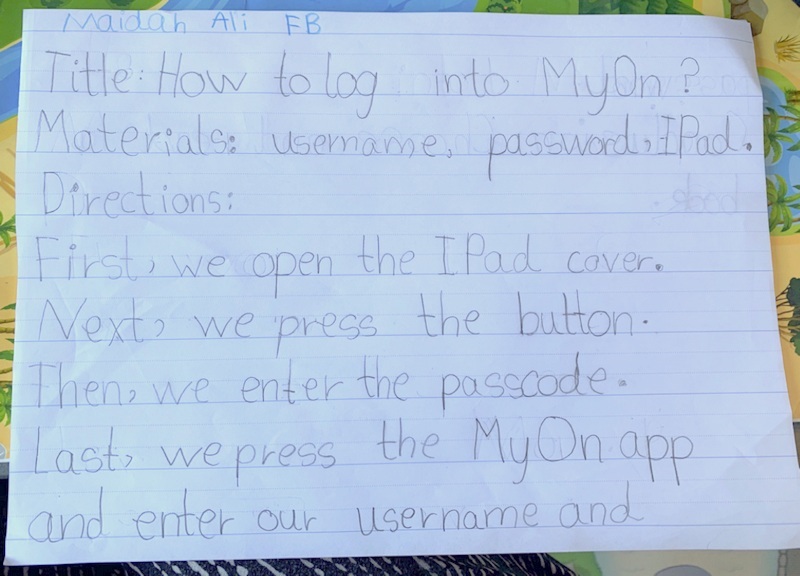 Maidah Ali FB
Title: How to log into MyOn?
Materials: username, password, IPad.
Directions:
First, we open the IPad cover.
Next, we press the button.
Then, we enter the passcode.
Last, we press the MyOn app
and enter our username and